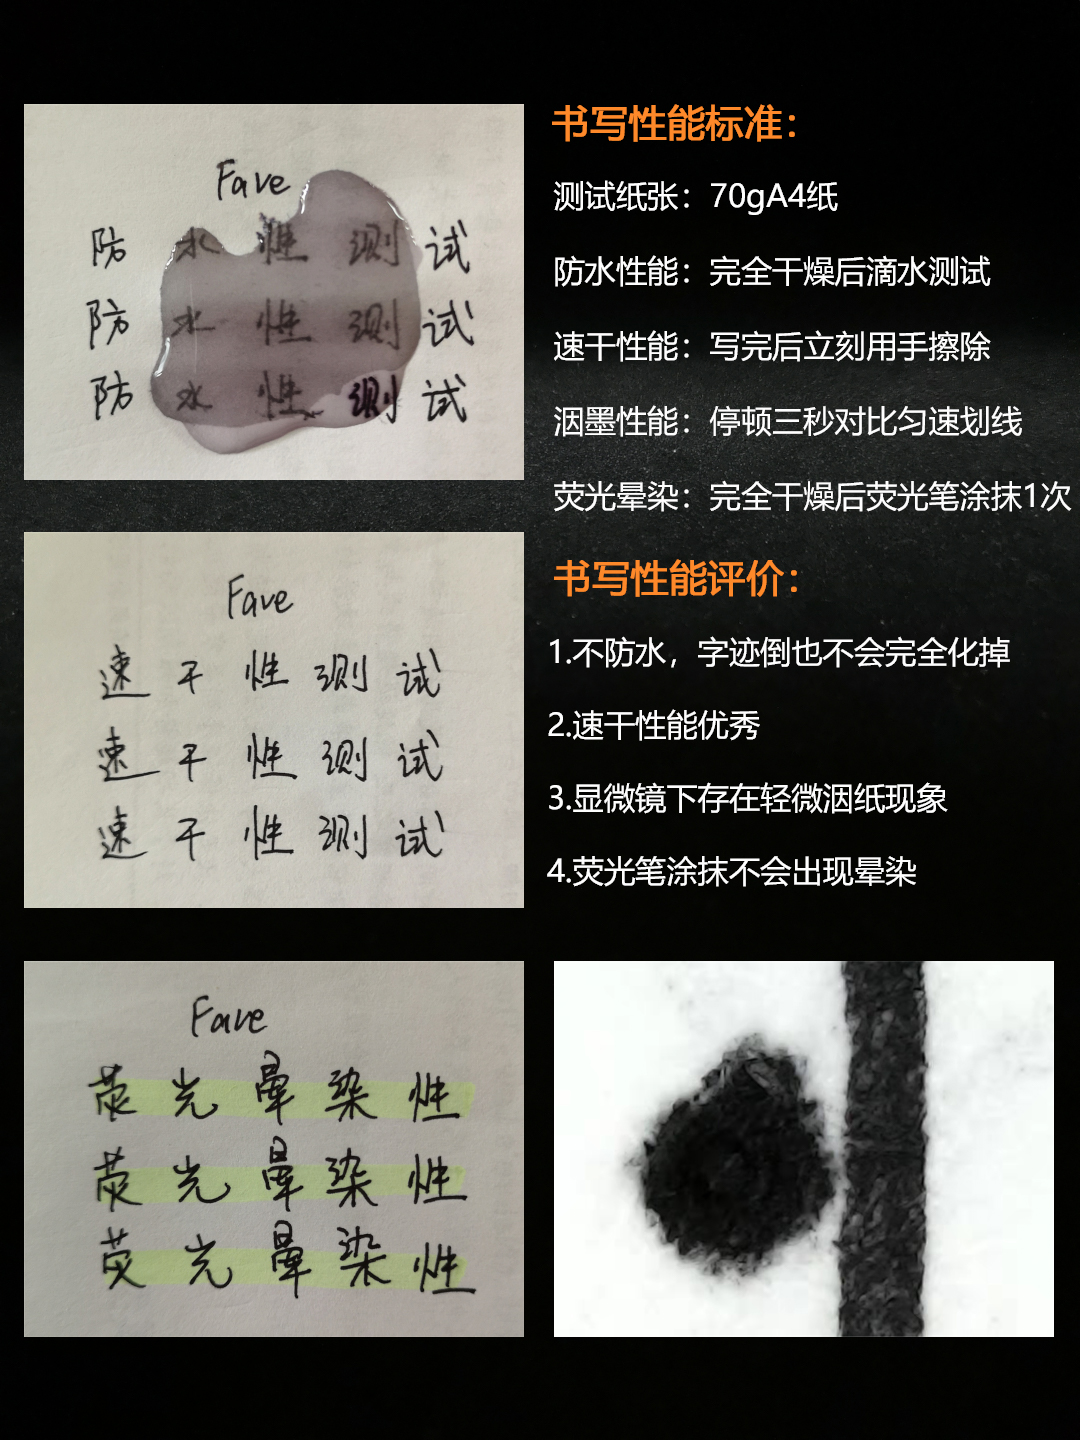 Fave
防 水 性 测 试
防 水 性 测 试
防 水 性 测 试
书写性能标准：
测试纸张：70gA4纸
防水性能：完全干燥后滴水测试
速干性能：写完后立刻用手擦除
洇墨性能：停顿三秒对比匀速划线
荧光晕染：完全干燥后荧光笔涂抹1次
Fave
速 干 性 测 试
速 干 性 测 试
速 干 性 测 试
书写性能评价：
1.不防水，字迹倒也不会完全化掉
2.速干性能优秀
3.显微镜下存在轻微洇纸现象
4.荧光笔涂抹不会出现晕染
Fave
荧 光 晕 染 性
荧 光 晕 染 性
荧 光 晕 染 性